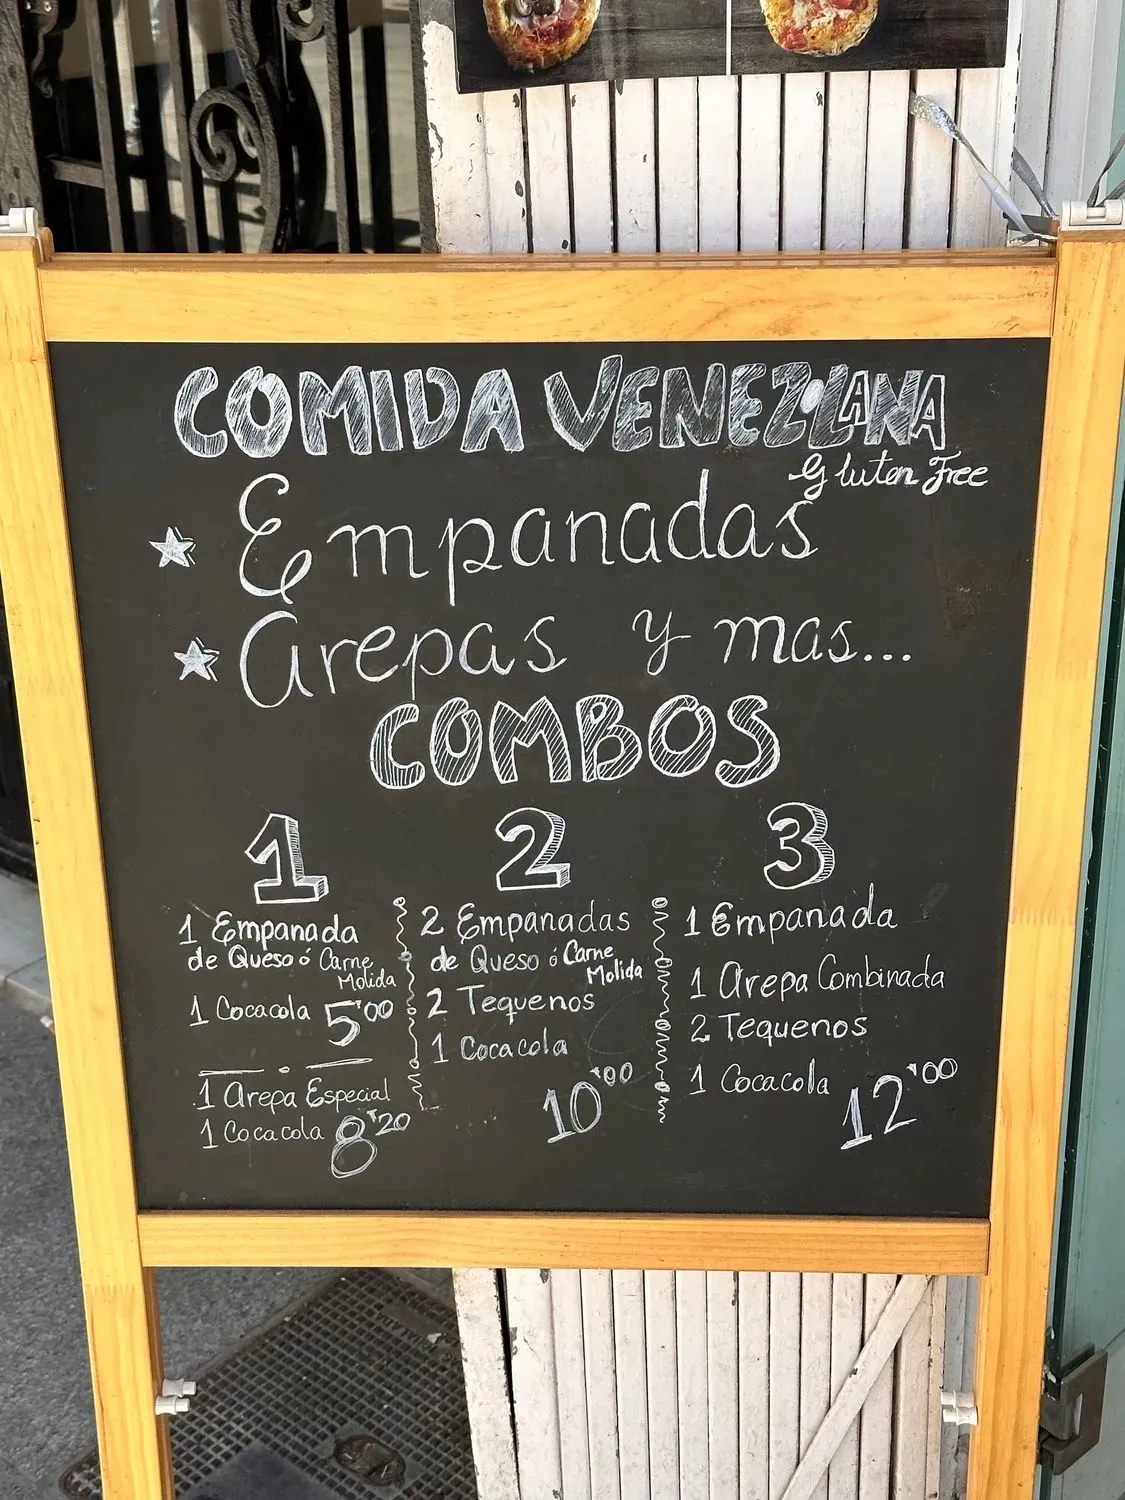 COMIDA VENEZOLANA
Gluten Free
Empanadas
Arepas y mas...
COMBOS
1
1 Empanada
de Queso ó Carne
Molida
1 Cocacola 5'00
1 Arepa Especial
1 Cocacola 8'20
2
2 Empanadas
de Queso ó Carne
Molida
2 Tequenos
1 Cocacola
10'00
3
1 Empanada
1 Arepa Combinada
2 Tequenos
1 Cocacola 12'00